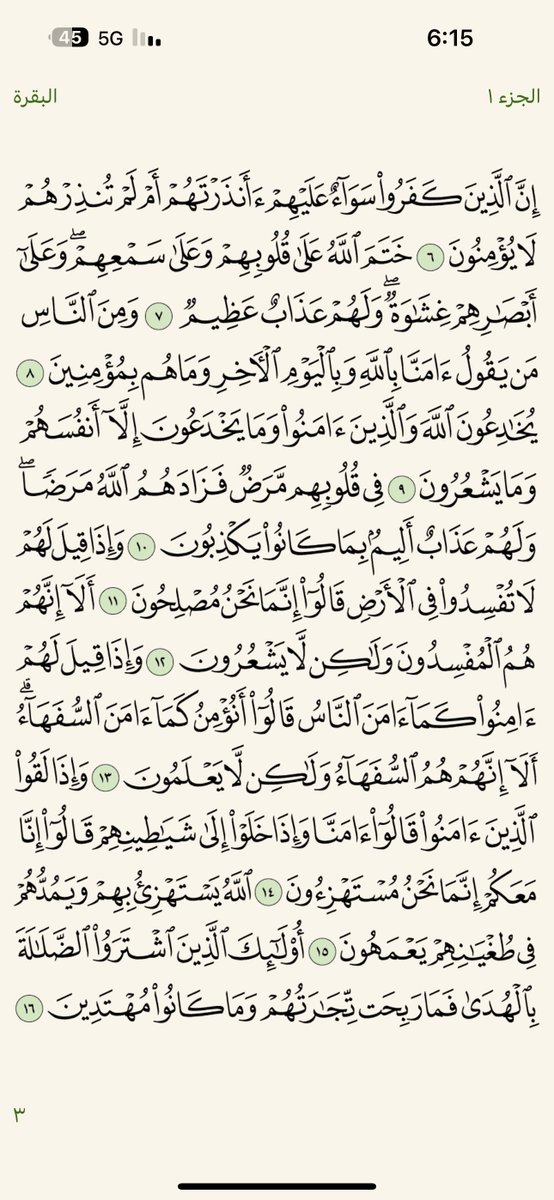 45 5G 6:15
الجزء ١ البقرة
إِنَّ ٱلَّذِينَ كَفَرُوا۟ سَوَآءٌ عَلَيْهِمْ ءَأَنذَرْتَهُمْ أَمْ لَمْ تُنذِرْهُمْ
لَا يُؤْمِنُونَ ٦ خَتَمَ ٱللَّهُ عَلَىٰ قُلُوبِهِمْ وَعَلَىٰ سَمْعِهِمْ ۖ وَعَلَىٰٓ
أَبْصَٰرِهِمْ غِشَٰوَةٌ ۖ وَلَهُمْ عَذَابٌ عَظِيمٌ ٧ وَمِنَ ٱلنَّاسِ
مَن يَقُولُ ءَامَنَّا بِٱللَّهِ وَبِٱلْيَوْمِ ٱلْءَاخِرِ وَمَا هُم بِمُؤْمِنِينَ ٨
يُخَٰدِعُونَ ٱللَّهَ وَٱلَّذِينَ ءَامَنُوا۟ وَمَا يَخْدَعُونَ إِلَّآ أَنفُسَهُمْ
وَمَا يَشْعُرُونَ ٩ فِى قُلُوبِهِم مَّرَضٌ فَزَادَهُمُ ٱللَّهُ مَرَضًا ۖ
وَلَهُمْ عَذَابٌ أَلِيمٌۢ بِمَا كَانُوا۟ يَكْذِبُونَ ١٠ وَإِذَا قِيلَ لَهُمْ
لَا تُفْسِدُوا۟ فِى ٱلْأَرْضِ قَالُوٓا۟ إِنَّمَا نَحْنُ مُصْلِحُونَ ١١ أَلَآ إِنَّهُمْ
هُمُ ٱلْمُفْسِدُونَ وَلَٰكِن لَّا يَشْعُرُونَ ١٢ وَإِذَا قِيلَ لَهُمْ
ءَامِنُوا۟ كَمَآ ءَامَنَ ٱلنَّاسُ قَالُوٓا۟ أَنُؤْمِنُ كَمَآ ءَامَنَ ٱلسُّفَهَآءُ ۗ
أَلَآ إِنَّهُمْ هُمُ ٱلسُّفَهَآءُ وَلَٰكِن لَّا يَعْلَمُونَ ١٣ وَإِذَا لَقُوا۟
ٱلَّذِينَ ءَامَنُوا۟ قَالُوٓا۟ ءَامَنَّا وَإِذَا خَلَوْا۟ إِلَىٰ شَيَٰطِينِهِمْ قَالُوٓا۟ إِنَّا
مَعَكُمْ إِنَّمَا نَحْنُ مُسْتَهْزِءُونَ ١٤ ٱللَّهُ يَسْتَهْزِئُ بِهِمْ وَيَمُدُّهُمْ
فِى طُغْيَٰنِهِمْ يَعْمَهُونَ ١٥ أُو۟لَٰٓئِكَ ٱلَّذِينَ ٱشْتَرَوُا۟ ٱلضَّلَٰلَةَ
بِٱلْهُدَىٰ فَمَا رَبِحَت تِّجَٰرَتُهُمْ وَمَا كَانُوا۟ مُهْتَدِينَ ١٦
٣